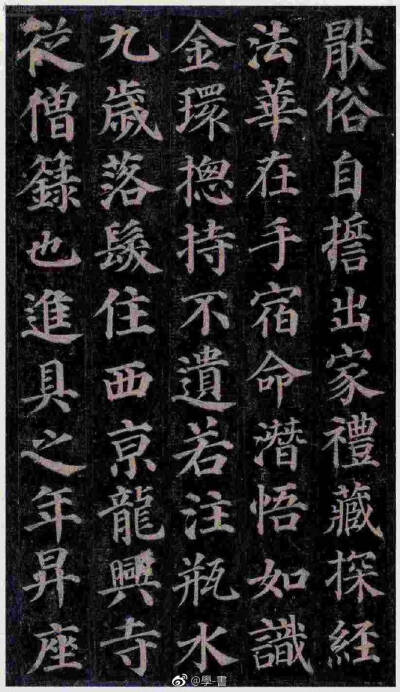 猒俗自擔出家禮藏探經
法華在手宿命潛悟如識
金環揔持不遺若注瓶水
九歲落髮住西京龍興寺
從僧籙也進具之年昇座
@學-書